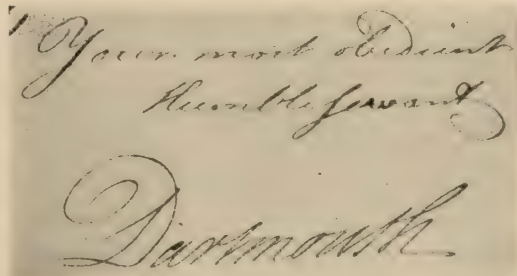 Your most obedient
Humble servant
Dartmouth